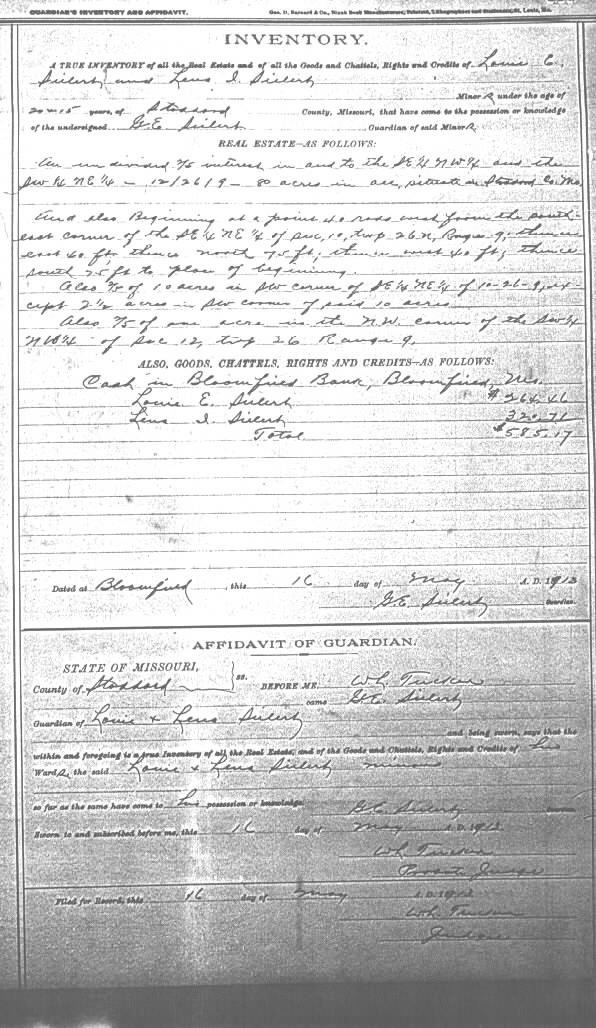 GUARDIAN'S INVENTORY AND AFFIDAVIT.
Geo. D. Barnard & Co., Blank Book Manufacturers, Printers, Lithographers and Stationers, St. Louis, Mo.
INVENTORY.
A TRUE INVENTORY of all the Real Estate and of all the Goods and Chattels, Rights and Credits of Louie E.
Sielert and Lena I. Sielert
Minors under the age of
20 - 15 years, of Stoddard County, Missouri, that have come to the possession or knowledge
of the undersigned G.E. Sielert Guardian of said Minors.
REAL ESTATE—AS FOLLOWS:
An undivided 2/5 interest in and to the SE 1/4 NW 1/4 and the
SW 1/4 NE 1/4 - 12/26/9 - 80 acres in all, situate in Stoddard Co. Mo.
And also Beginning at a point 40 rods west from the south-
east corner of the SE 1/4 NE 1/4 of Sec, 10, twp 26 N, Range 9, thence
east 40 ft. thence north 75 ft, thence west 40 ft, thence
south 75 ft to place of beginning.
Also 2/5 of 10 acres in SW corner of SE 1/4 NE 1/4 of 10-26-9, ex-
cept 2 1/2 acres in SW corner of said 10 acres
Also 2/5 of one acre in the N.W. corner of the SW 1/4
NW 1/4 of Sec 12, twp 26 Range 9.
ALSO, GOODS, CHATTELS, RIGHTS AND CREDITS—AS FOLLOWS:
Cash in Bloomfield Bank, Bloomfield, Mo.
Louie E. Sielert $264.46
Lena I. Sielert 320.71
Total $585.17
Dated at Bloomfield, this 16 day of May A. D. 1912
G.E. Sielert Guardian.
AFFIDAVIT OF GUARDIAN.
STATE OF MISSOURI,
County of Stoddard ss. BEFORE ME W.L. Tucker
came G.E. Sielert
Guardian of Louie & Lena Sielert
and being sworn, says that the
within and foregoing is a true Inventory of all the Real Estate, and of the Goods and Chattels, Rights and Credits of his
Wards, the said Louie & Lena Sielert minors
so far as the same have come to his possession or knowledge. G.E. Sielert
Sworn to and subscribed before me, this 16 day of May A. D. 1912
W.L. Tucker
Probate Judge
Filed for Record, this 16 day of May A. D. 1912
W.L. Tucker
Judge